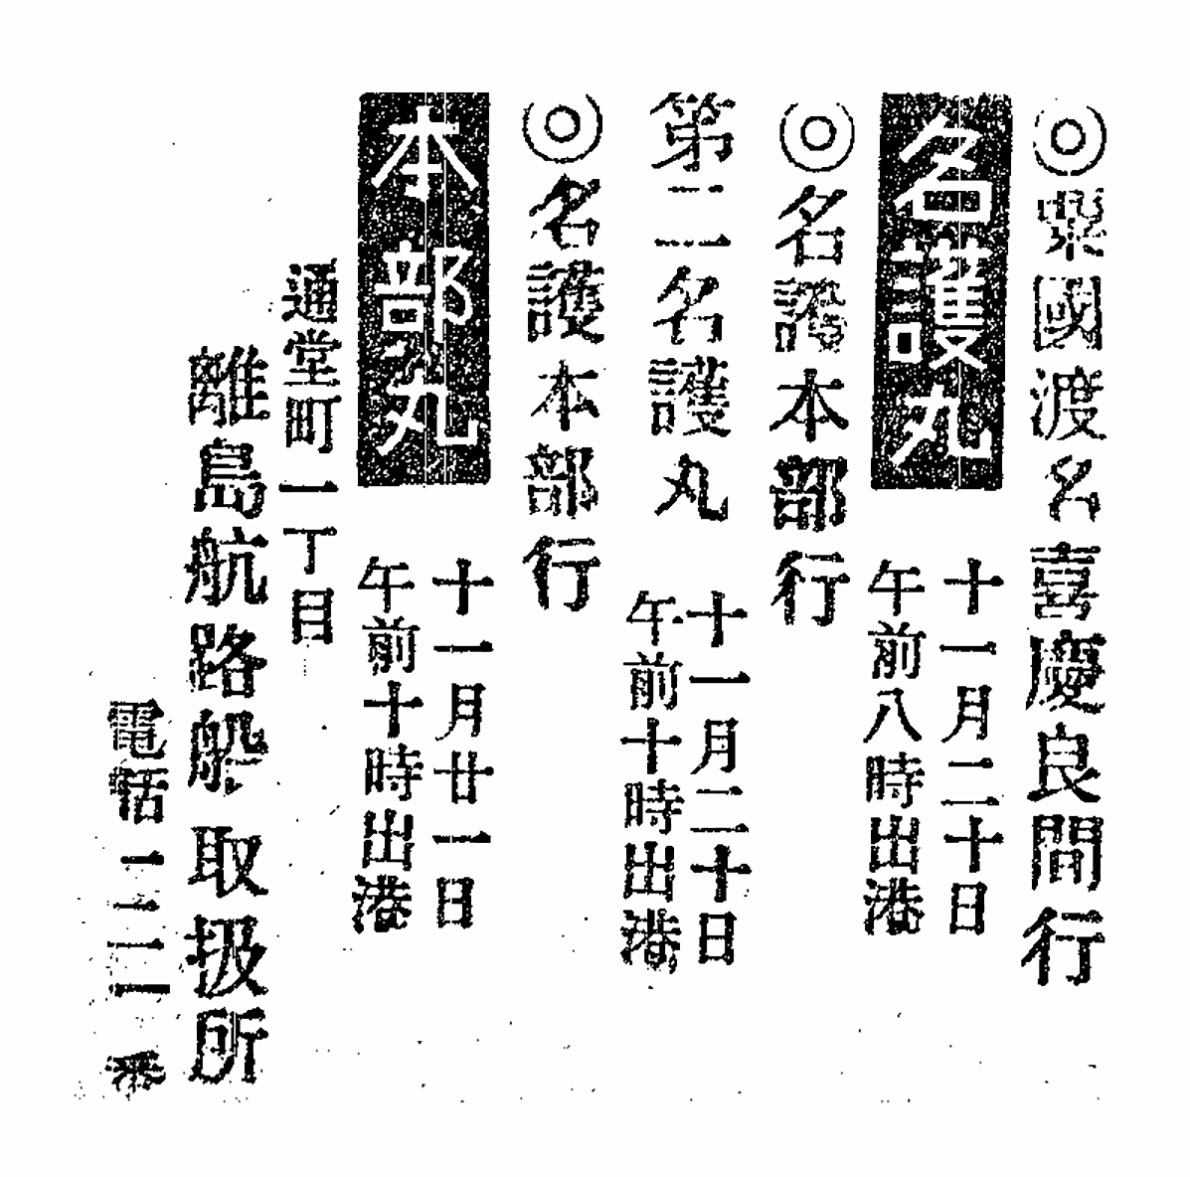 ◎粟國渡名喜慶良間行
名護丸
十一月二十日
午前八時出港
◎名護本部行
第二名護丸
十一月二十日
午前十時出港
◎名護本部行
本部丸
十一月廿一日
午前十時出港
通堂町一丁目
離島航路船取扱所
電話
番